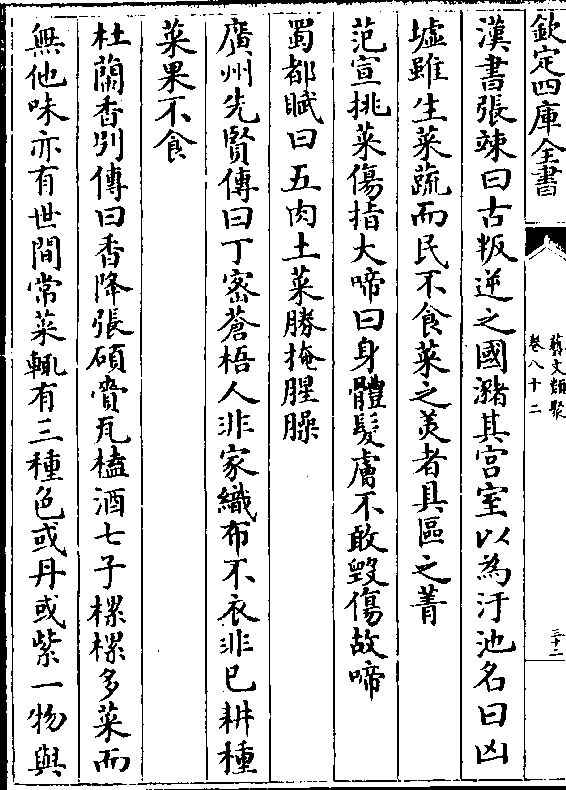 欽定四庫全書
藝文類聚
卷八十二
三十二
漢書張竦曰古叛逆之國瀦其宮室以為汙池名曰凶
墟雖生菜蔬而民不食菜之美者具區之菁
范宣挑菜傷指大啼曰身體髮膚不敢毀傷故啼
蜀都賦曰五肉土菜勝掩腥臊
廣州先賢傳曰丁宻蒼梧人非家織布不衣非已耕種
菜果不食
杜蘭香別傳曰香降張碩賫瓦榼酒七子樏樏多菜而
無他味亦有世間常菜輒有三種色或丹或紫一物與